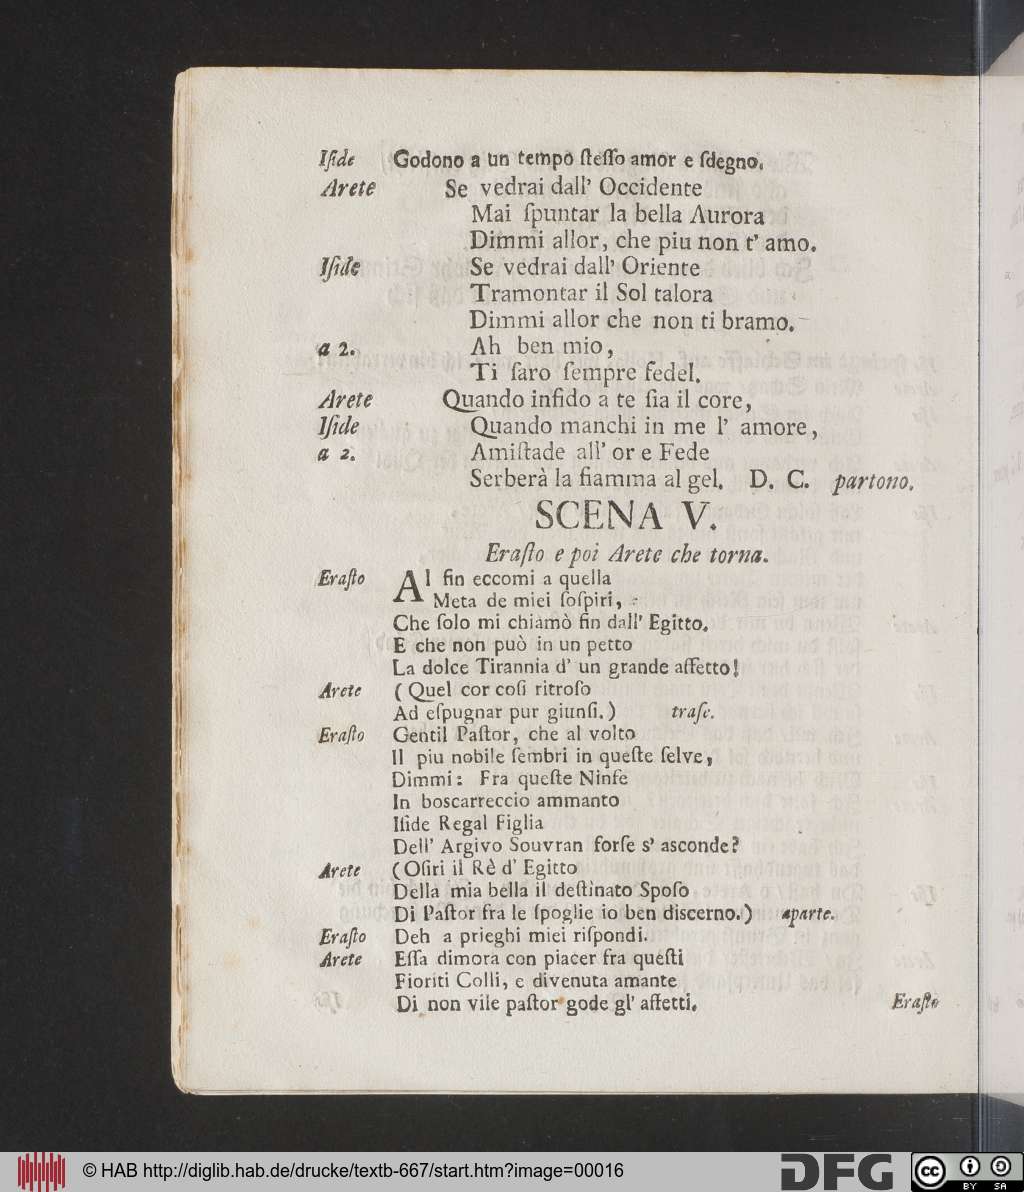 Iſide Godono a un tempo ſteſſo amor e ſdegno.
Arete Se vedrai dall' Occidente
Mai ſpuntar la bella Aurora
Dimmi allor, che piu non t' amo.
Iſide Se vedrai dall' Oriente
Tramontar il Sol talora
Dimmi allor che non ti bramo.
a 2. Ah ben mio,
Ti ſaro ſempre fedel.
Arete Quando infido a te ſia il core,
Iſide Quando manchi in me l' amore,
a 2. Amiſtade all' or e Fede
Serberà la fiamma al gel. D. C. partono.
SCENA V.
Eraſto e poi Arete che torna.
Eraſto Al fin eccomi a quella
Meta de miei ſoſpiri,
Che ſolo mi chiamò fin dall' Egitto.
E che non può in un petto
La dolce Tirannia d' un grande affetto!
Arete ( Quel cor coſi ritroſo
Ad eſpugnar pur giunſi. ) traſe.
Eraſto Gentil Paſtor, che al volto
Il piu nobile ſembri in queſte ſelve,
Dimmi: Fra queſte Ninfe
In boscarreccio ammanto
Iſide Regal Figlia
Dell' Argivo Souvran forſe s' asconde?
Arete ( Oſiri il Rè d' Egitto
Della mia bella il deſtinato Spoſo
Di Paſtor fra le ſpoglie io ben discerno. ) aparte.
Eraſto Deh a prieghi miei riſpondi.
Arete Eſſa dimora con piacer fra queſti
Fioriti Colli, e divenuta amante
Di non vile paſtor gode gl' affetti.
Eraſto
© HAB http://diglib.hab.de/drucke/textb-667/start.htm?image=00016
DFG
cc BY SA